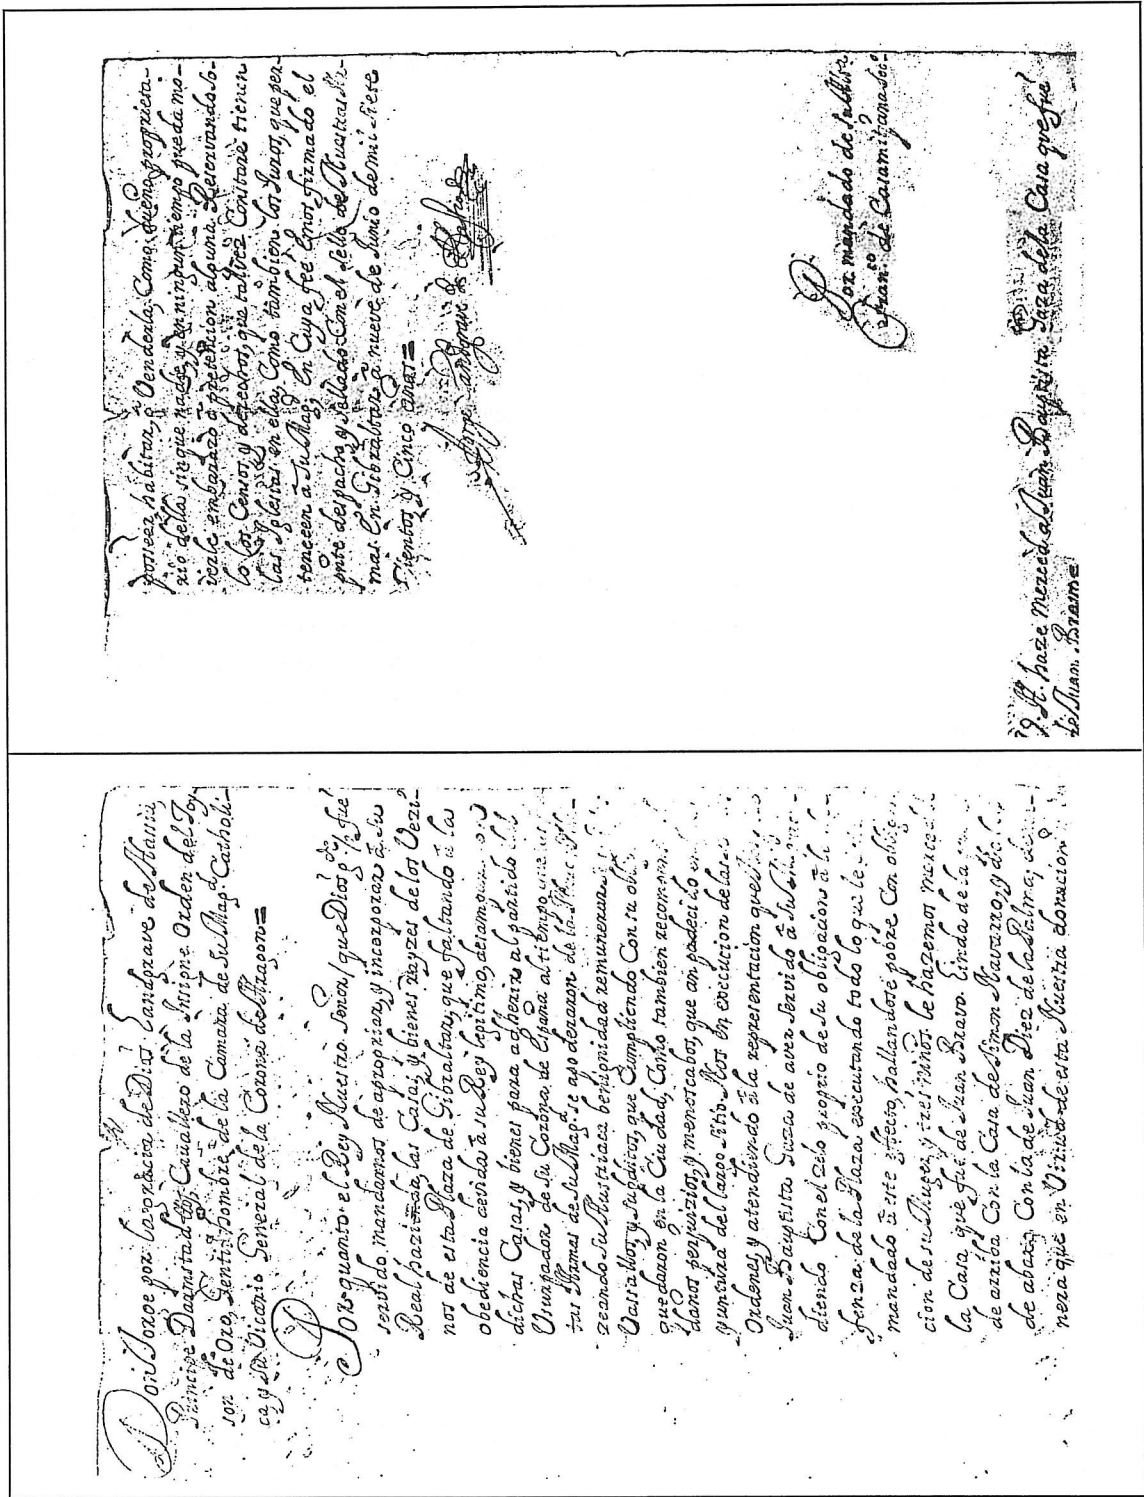 Don Jorge por la gracia de Dios Landgrave de Hassia,
Principe Darmstad Cauallero de la Insigne Orden del Toy-
son de Oro, Gentil hombre de la Camara de Su Magd. Catholi-
ca y su Vicario General de la Corona de Aragon=
Por quanto el Rey Nuestro Señor (que Dios gde.) fue
servido mandarnos de apropriar, y incorporar à su
Real hazienda las Casas, y bienes Rayzes de los Vezi-
nos de esta Plaza de Gibraltar, que faltando à la
obediencia devida à su Rey legitimo, desampararon
dichas Casas, y bienes para adherir al partido del
Usurpador de su Corona de España al tiempo que
tas Armas de Su Magd. se apoderaron de la
zeando Su Austriaca benignidad remunerar
Vassallos y Supditos, que Cumpliendo Con su
quedaron en la Ciudad, Como tambien recompen
daños perjuizios, y menoscabos, que an padecido en
y untura del largo Sitio. Nos en execucion de las
Ordenes y atendiendo à la representacion que
Juan Bauptista Saza de aver Servido à Su
diendo Con el zelo proprio de su obligacion à la
fenza de la Plaza executando todo lo que le
mandado à este efecto, hallandose pobre Con oblig
cion de su Muger, y tres niños le hazemos merced
la Casa que fue de Juan Bravo. Linda de la
de arriba Con la Casa de Simon Navarro, y de la
de abaxo Con la de Juan Diez de la Palma; de
nera que en Virtud de esta Nuestra donacion
posseer, habitar, ô Venderla, Como dueño proprieta-
rio della sin que nadie, y en ningun tiempo pueda mo-
verle embarazo ô pretencion alguna Reservando so-
lo los Censos y derechos, que tal vez Constare tienen
las Iglesias en ella, Como tambien los Juros, que per-
tenecen a Su Magd. En Cuya fee Emos firmado el
pnte despacho y Sellado Con el Sello de Nuestras Ar-
mas En Gibraltar à nueve de Junio de mil Siete
Cientos y Cinco años=
Jorge Landgrave de Hassia
Por mandado de Su Alteza
Franco. de Casamitjana Secº
V. A. haze Merced a Juan Bauptista Saza de la Casa que fue
de Juan Bravo=